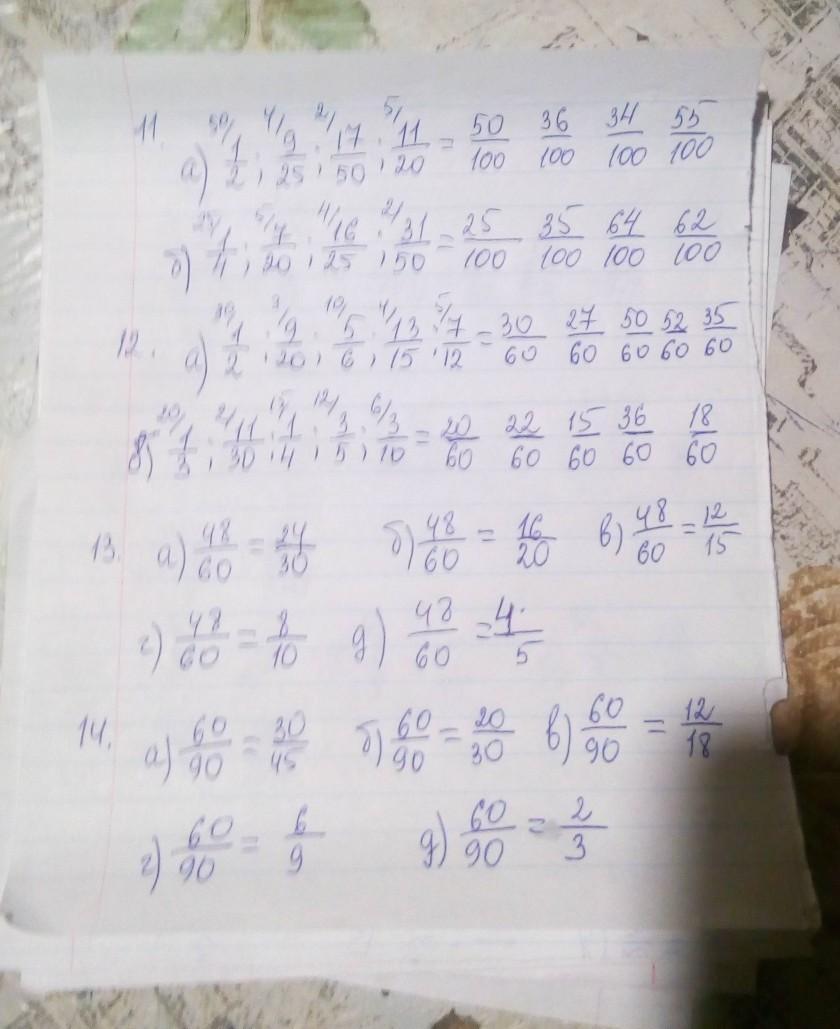 11. а) 50/ 1/2 ; 4/ 9/25 ; 2/ 17/50 ; 5/ 11/20 = 50/100 36/100 34/100 55/100
б) 25/ 1/4 ; 5/ 7/20 ; 4/ 16/25 ; 2/ 31/50 = 25/100 35/100 64/100 62/100
12. а) 30/ 1/2 ; 3/ 9/20 ; 10/ 5/6 ; 4/ 13/15 ; 5/ 7/12 = 30/60 27/60 50/60 52/60 35/60
б) 20/ 1/3 ; 2/ 11/30 ; 15/ 1/4 ; 12/ 3/5 ; 6/ 3/10 = 20/60 22/60 15/60 36/60 18/60
13. а) 48/60 = 24/30 б) 48/60 = 16/20 в) 48/60 = 12/15
г) 48/60 = 8/10 д) 48/60 = 4/5
14. а) 60/90 = 30/45 б) 60/90 = 20/30 в) 60/90 = 12/18
г) 60/90 = 6/9 д) 60/90 = 2/3